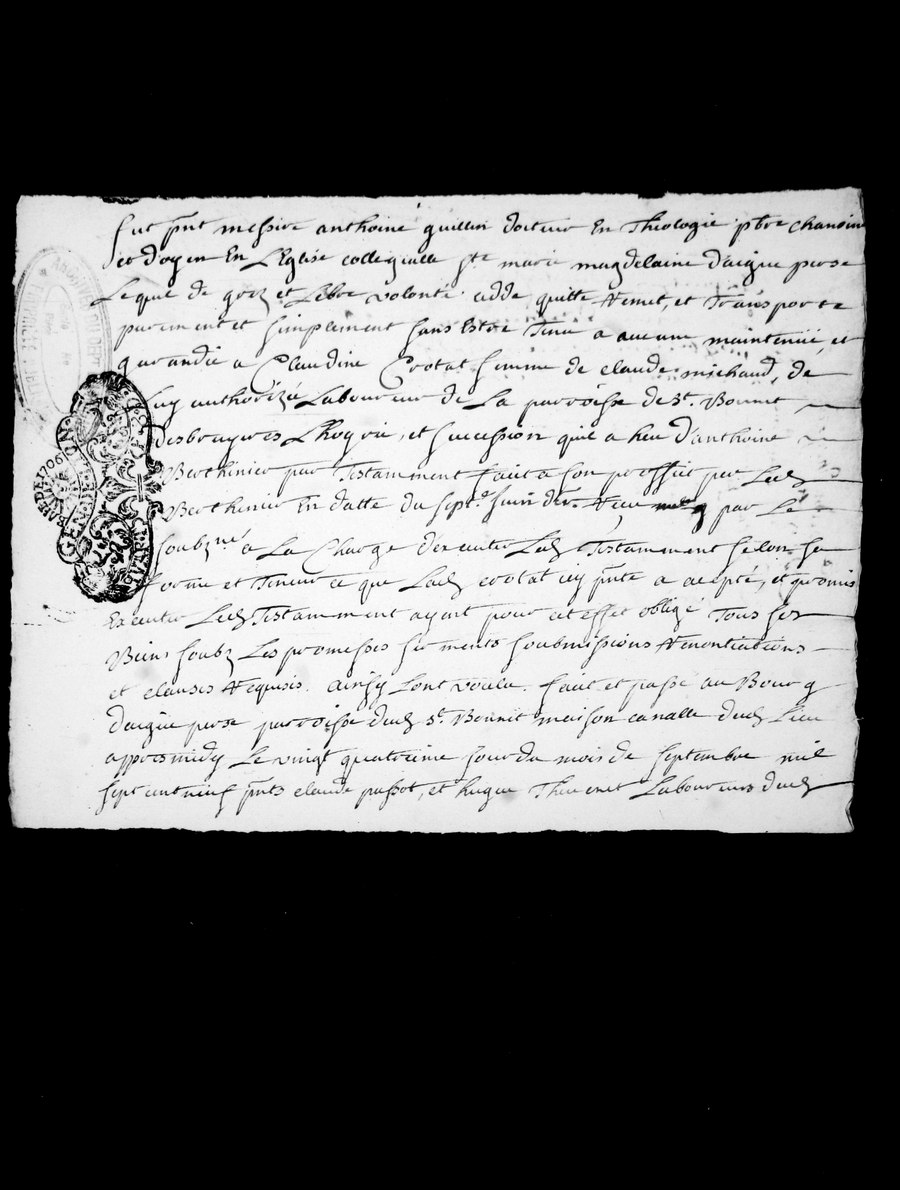 fut pnt messire anthoine guillin docteur En Theologie pbre chanoine
et doyen En L'Eglise collegialle Ste marie magdelaine daigue perse
Lequel de gré et Libre volonté cedde quitte Remet, et Transporte
purement et simplement sans Estre Tenu a aucune maintenüe, et
garandie a Claudine Crotat femme de claude michaud, de
Luy authorizée Laboureur de La parroisse de St. Bonnet
desbruyeres L'hoyrie, et succession quil a heu d'anthoine
Berthinier par Testamment fait a son proffit par Led
Berthinier En datte du sept juin der Receu par Le
soubzné a La Charge d'executer Led Testamment selon sa
forme et Teneur ce que Lad crotat icy pnte a acepté, et promis
Executer Led Testamment ayant pour cet effet obligé Tous ses
Biens soubz Les promesses serments soubmissions Renontiations
et clauses Requises. ainsy Lont voulu. fait et passé au Bourg
daigue perse parroisse dud St. Bonnet maison canialle dud Lieu
appres midy Le vingt quatrieme jour du mois de septembre mil
sept cent neuf pnts claude passot, et hugue Thevenet Laboureurs dud
GEN. DE LION